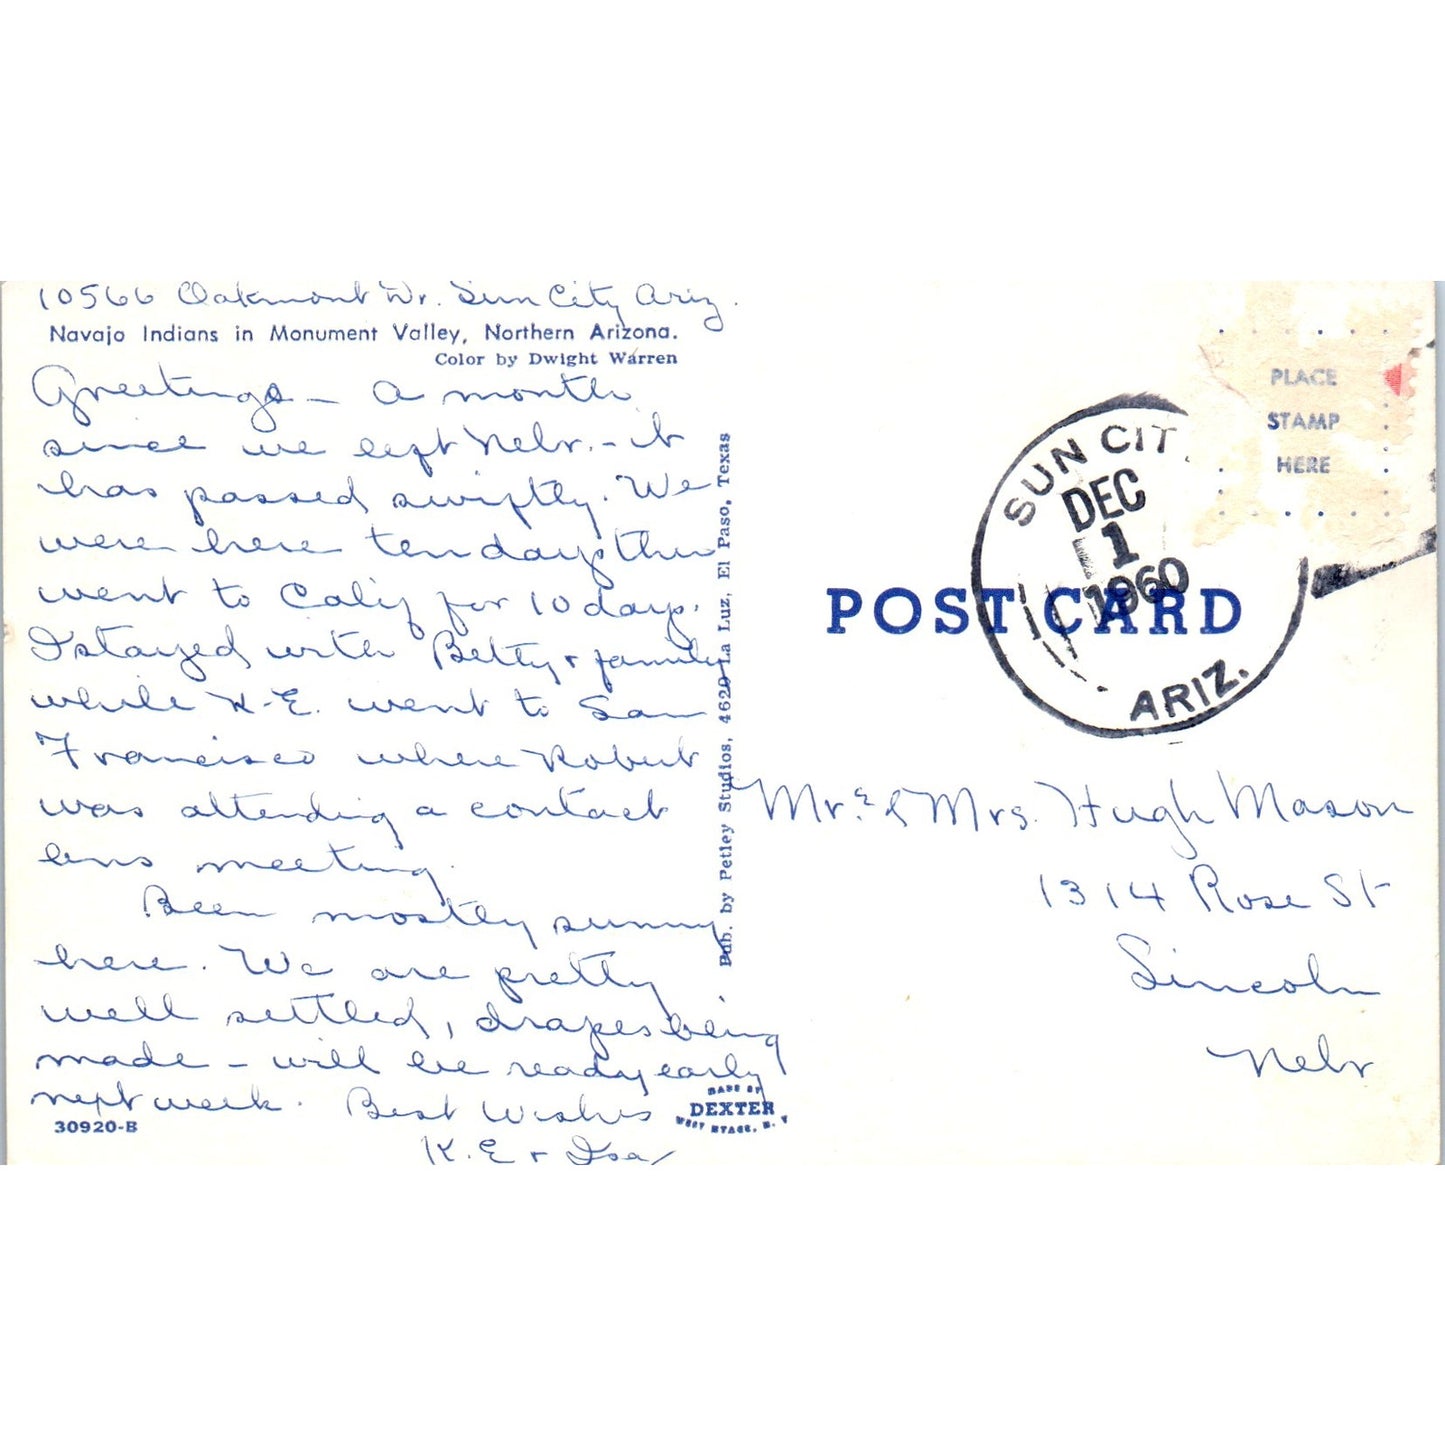 10566 Oakmont Dr. Sun City Ariz.
Navajo Indians in Monument Valley, Northern Arizona.
Color by Dwight Warren
Greetings – A month
since we left Nebr. – it
has passed swiftly. We
were here ten days then
went to Calif for 10 days.
I stayed with Betty & family
while K.E. went to San
Francisco where Robert
was attending a contact
lens meeting.
Been mostly sunny
here. We are pretty
well settled, drapes being
made – will be ready early
next week. Best Wishes
K.E & Isa
30920-B
Pub. by Petley Studios, 4620 La Luz, El Paso, Texas
MADE BY
DEXTER
WEST NYACK, N. Y.
PLACE
STAMP
HERE
SUN CIT
DEC
1
1960
ARIZ.
POST CARD
Mr. & Mrs. Hugh Mason
1314 Rose St
Lincoln
Nebr